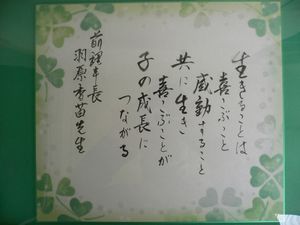 生きることは
喜こぶこと
感動すること
共に生き
喜こぶことが
子の成長に
つながる
前理事長
羽原香苗先生